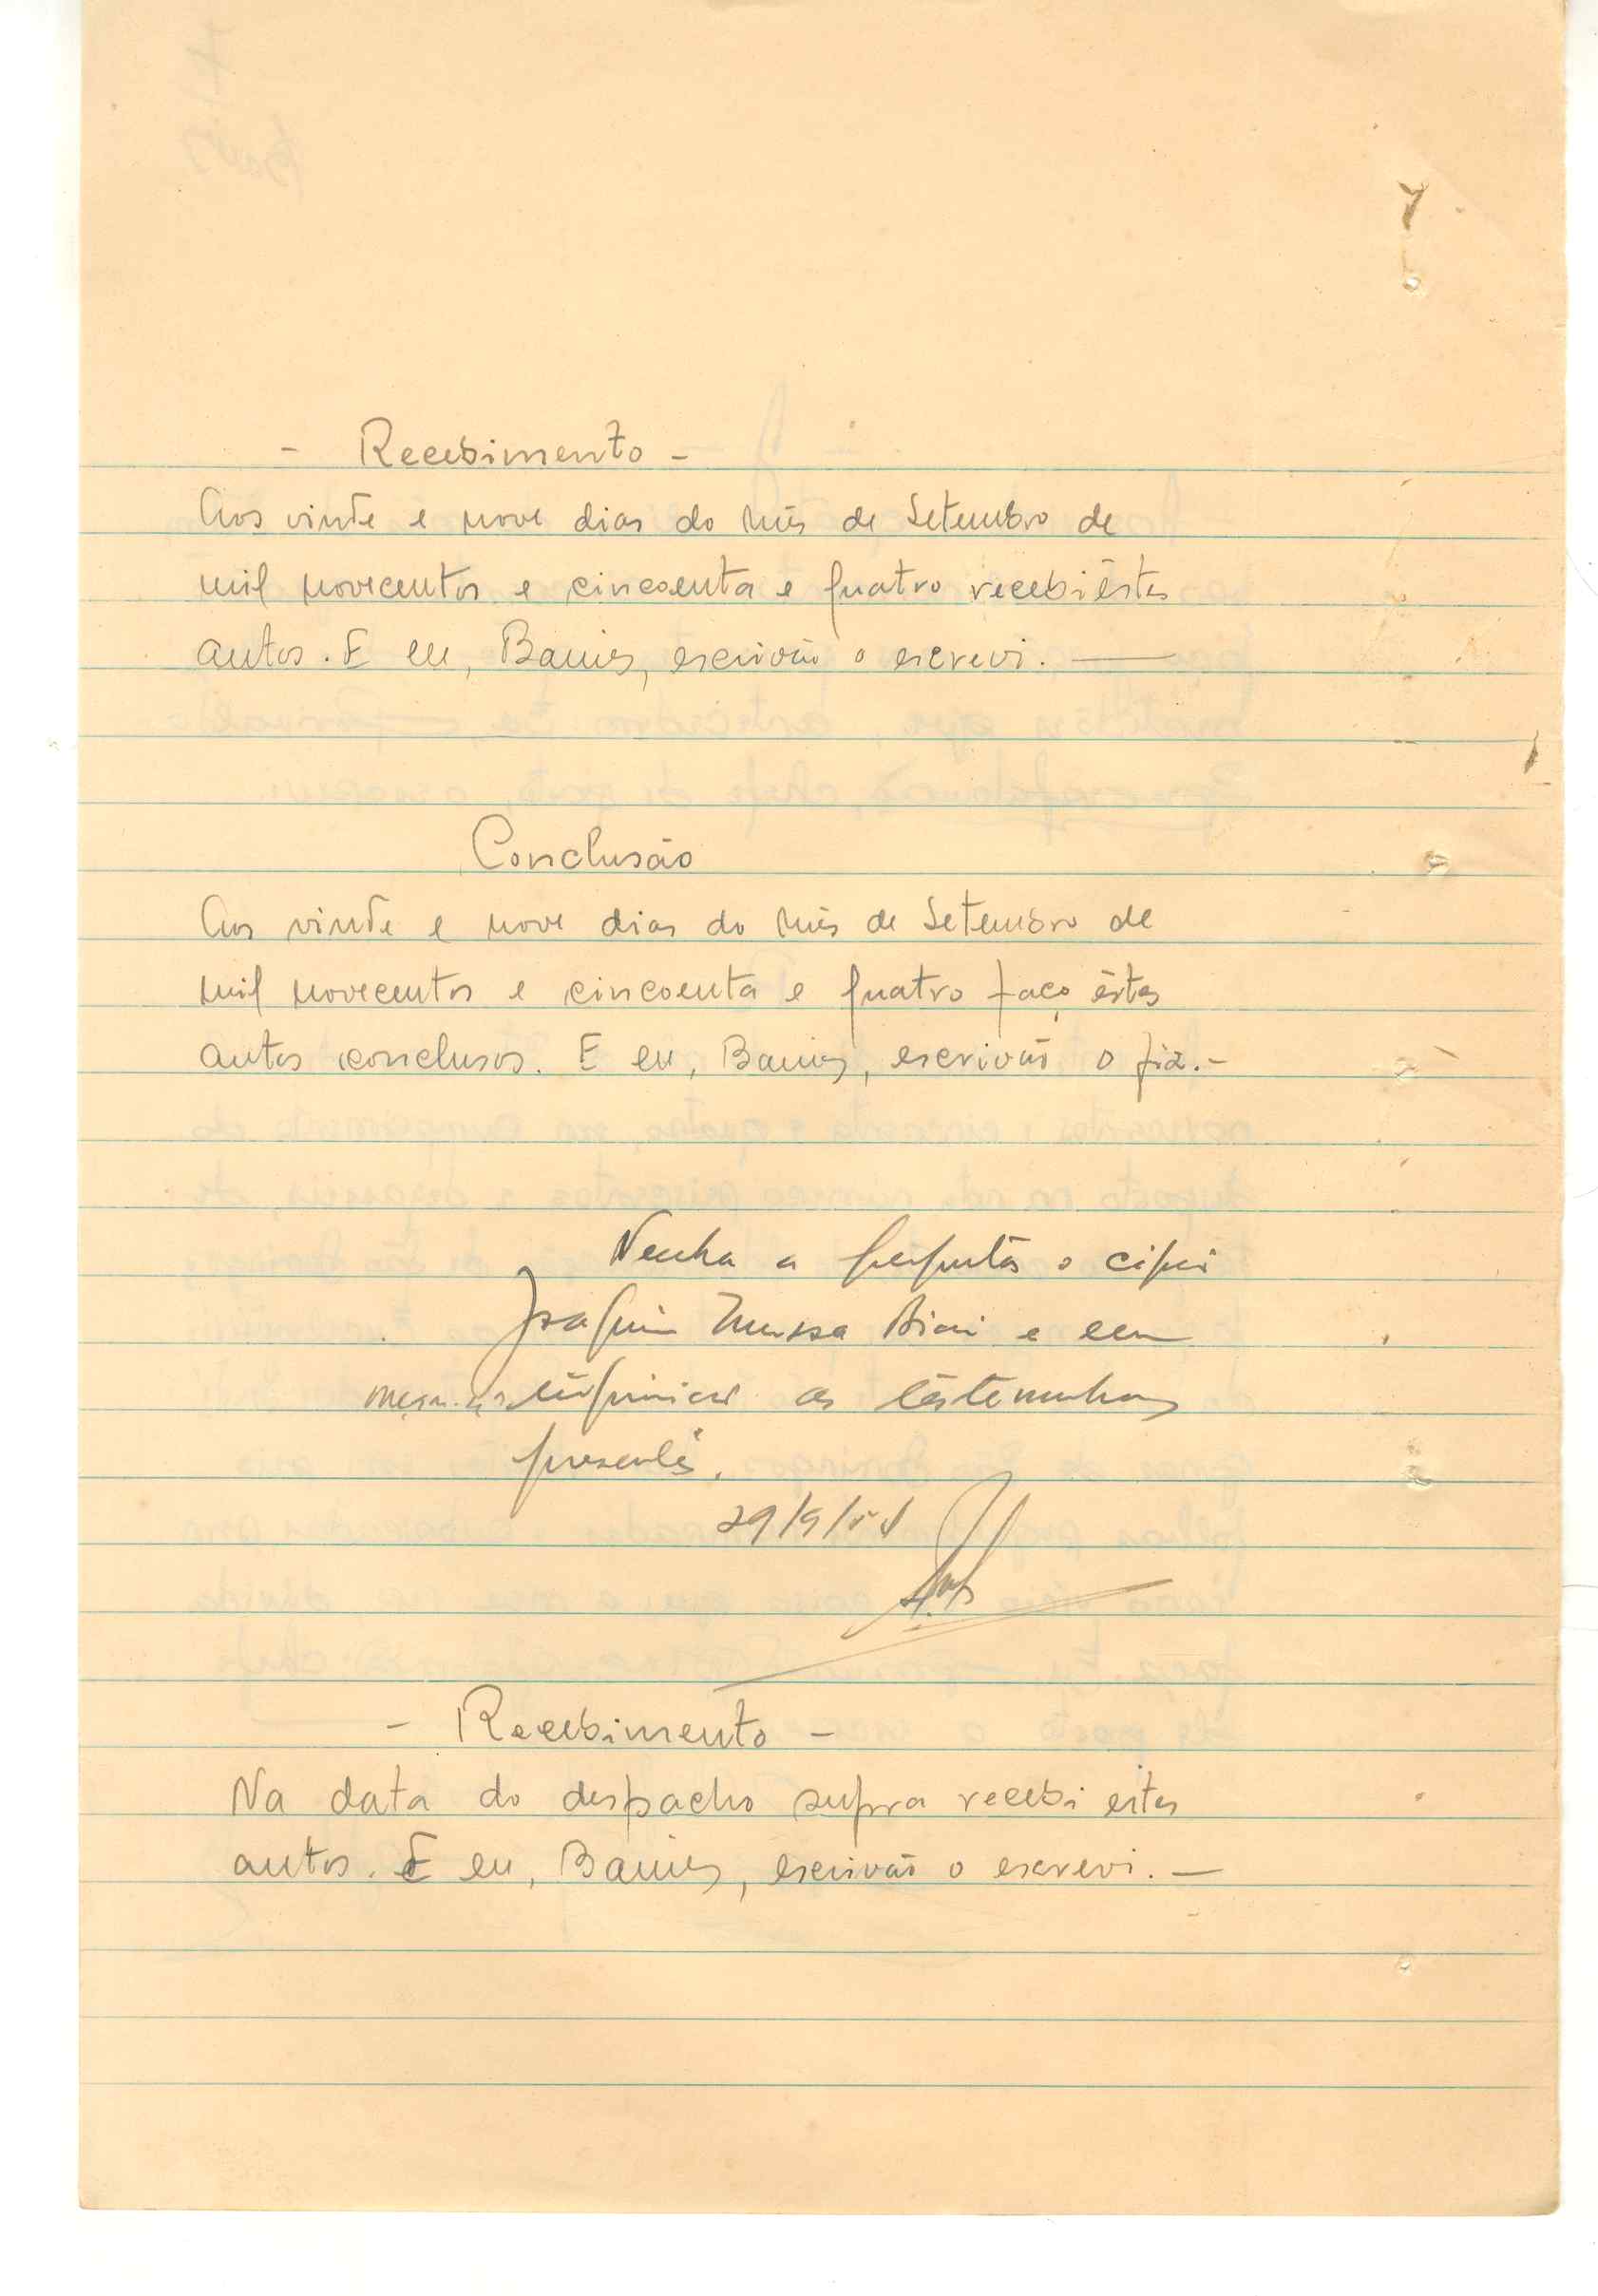 - Recebimento -
Aos vinte e nove dias do mês de Setembro de
mil novecentos e cincoenta e quatro recebi êstes
autos. E eu, escrivão o escrevi.
Conclusão
Aos vinte e nove dias do mês de Setembro de
mil novecentos e cincoenta e quatro faço êstes
autos conclusos. E eu, escrivão o fiz.-
Venha a perguntas o cipai
Joaquim Mussa Biai e
as testemunhas
presentes.
29/9/54
- Recebimento -
Na data do despacho supra recebi estes
autos. E eu, escrivão o escrevi. —